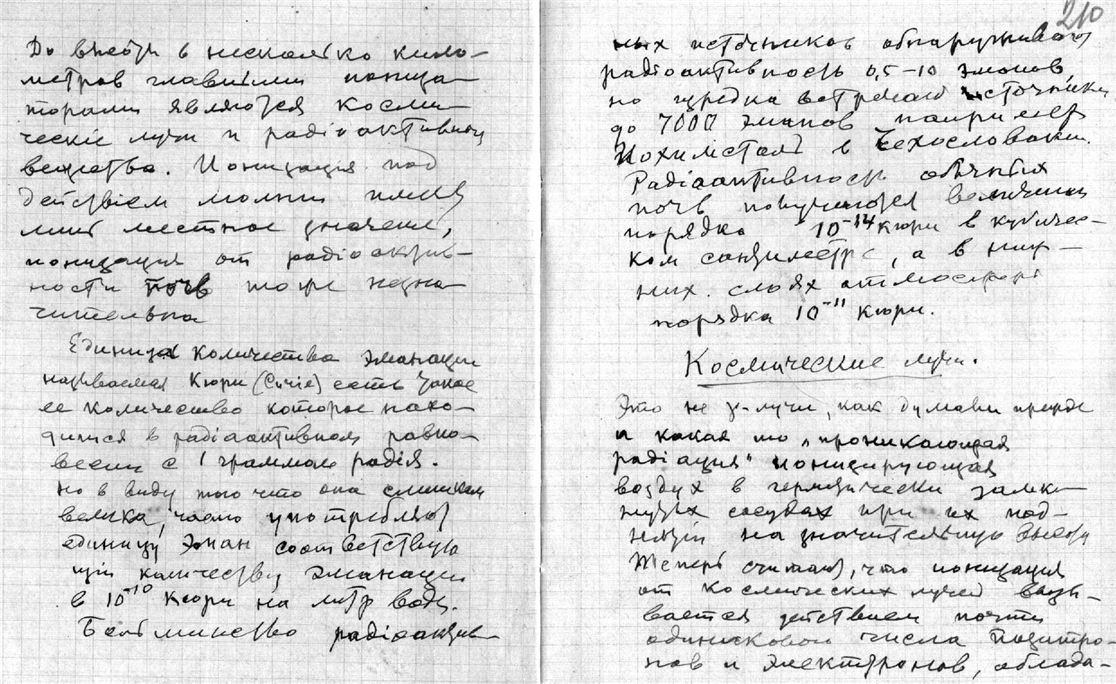 До высоты в несколько кило-
метров главными иониза-
торами являются Косми-
ческiе лучи и радiоактивныя
вещества. Ионизация под
действiем молнии имеет
лишь местное значенiе,
ионизация от радiоактив-
ности почв тоже незна-
чительна
Единица количества эманации
называемая Кюри (Curie) есть такое
ее количество которое нахо-
дится в радiоактивном равно-
весии с 1 граммом радiя.
Но в виду того что она слишком
велика, часто употребляют
единицу Эман соответствую
щую количеству эманации
в 10⁻¹⁰ Кюри на литр воды.
Большинство радiоактив-
210
ных источников обнаруживают
радiоактивность 0,5–10 эманов,
но изредка встречают источники
до 7000 эманов например
Иохимсталь в Чехословакии.
Радiоактивность обычных
почв получается величины
порядка 10⁻¹⁴ Кюри в кубичес-
ком сантиметре, а в ниж-
них слоях атмосферы
порядка 10⁻¹¹ Кюри.
Космические лучи.
Это не γ-лучи, как думали прежде
и какая то „проникающая
радiация" ионизирующая
воздух в герметически замк-
нутых сосудах при их под-
нятiи на значительную высоту
Теперь считают, что ионизация
от космических лучей вызы-
вается действием почти
одинакового числа позитро-
нов и электронов, облада-